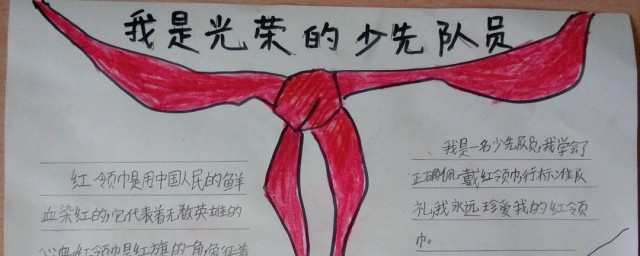 我是光荣的少先队员
红领巾是用中国人民的鲜
血染红的,它代表着无数英雄的
红领巾是红旗的一角,象征着
我是一名少先队员,我学会了
正确佩戴红领巾,行标准队
礼,我永远珍爱我的红领
巾。